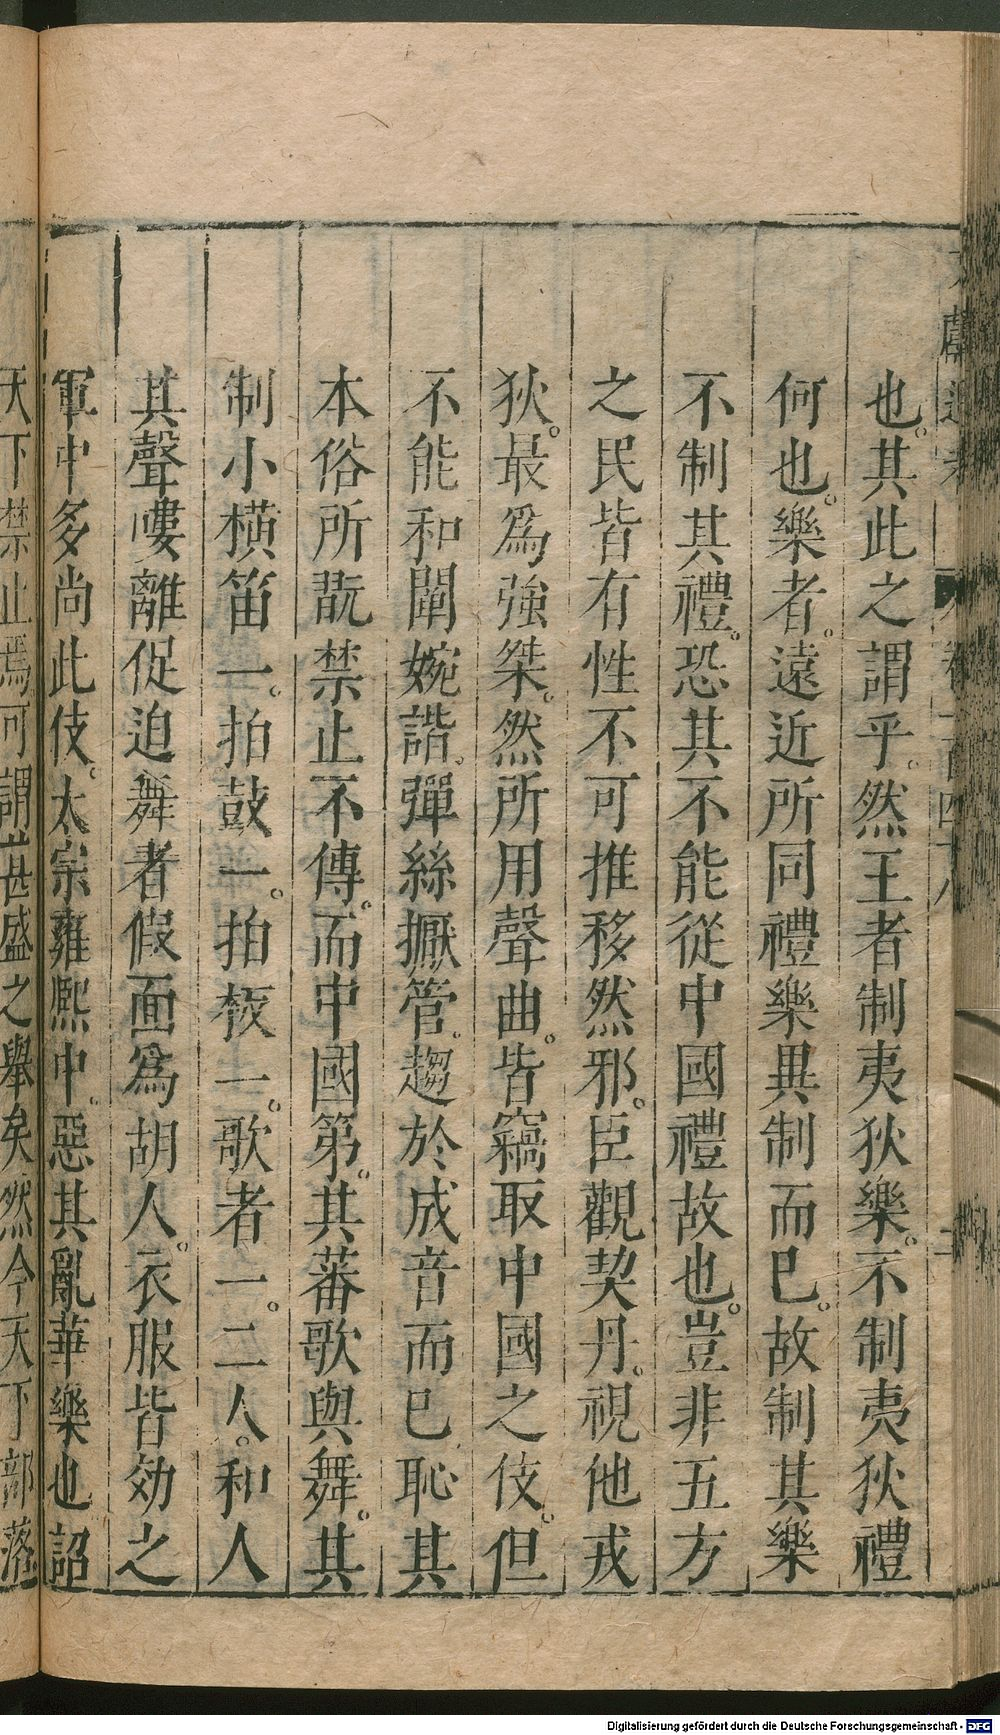 文獻通考 卷一百四十八
也。其此之謂乎。然王者制夷狄樂。不制夷狄禮
何也。樂者。遠近所同禮樂異制而已。故制其樂
不制其禮。恐其不能從中國禮故也。豈非五方
之民皆有性不可推移然邪。臣觀契丹。視他戎
狄。最爲強桀。然所用聲曲。皆竊取中國之伎。但
不能和闡婉諧。彈絲擫管。趨於成音而已恥其
本俗所翫禁止不傳。而中國第。其蕃歌與舞。其
制小橫笛一。拍鼓一。拍板一。歌者一。二人。和人
其聲嘍離促迫舞者假面爲胡人。衣服皆効之
軍中多尚此伎。太宗雍熙中。惡其亂華樂也詔
天下禁止焉可謂甚盛之舉矣然今天下部落
Digitalisierung gefördert durch die Deutsche Forschungsgemeinschaft - DFG